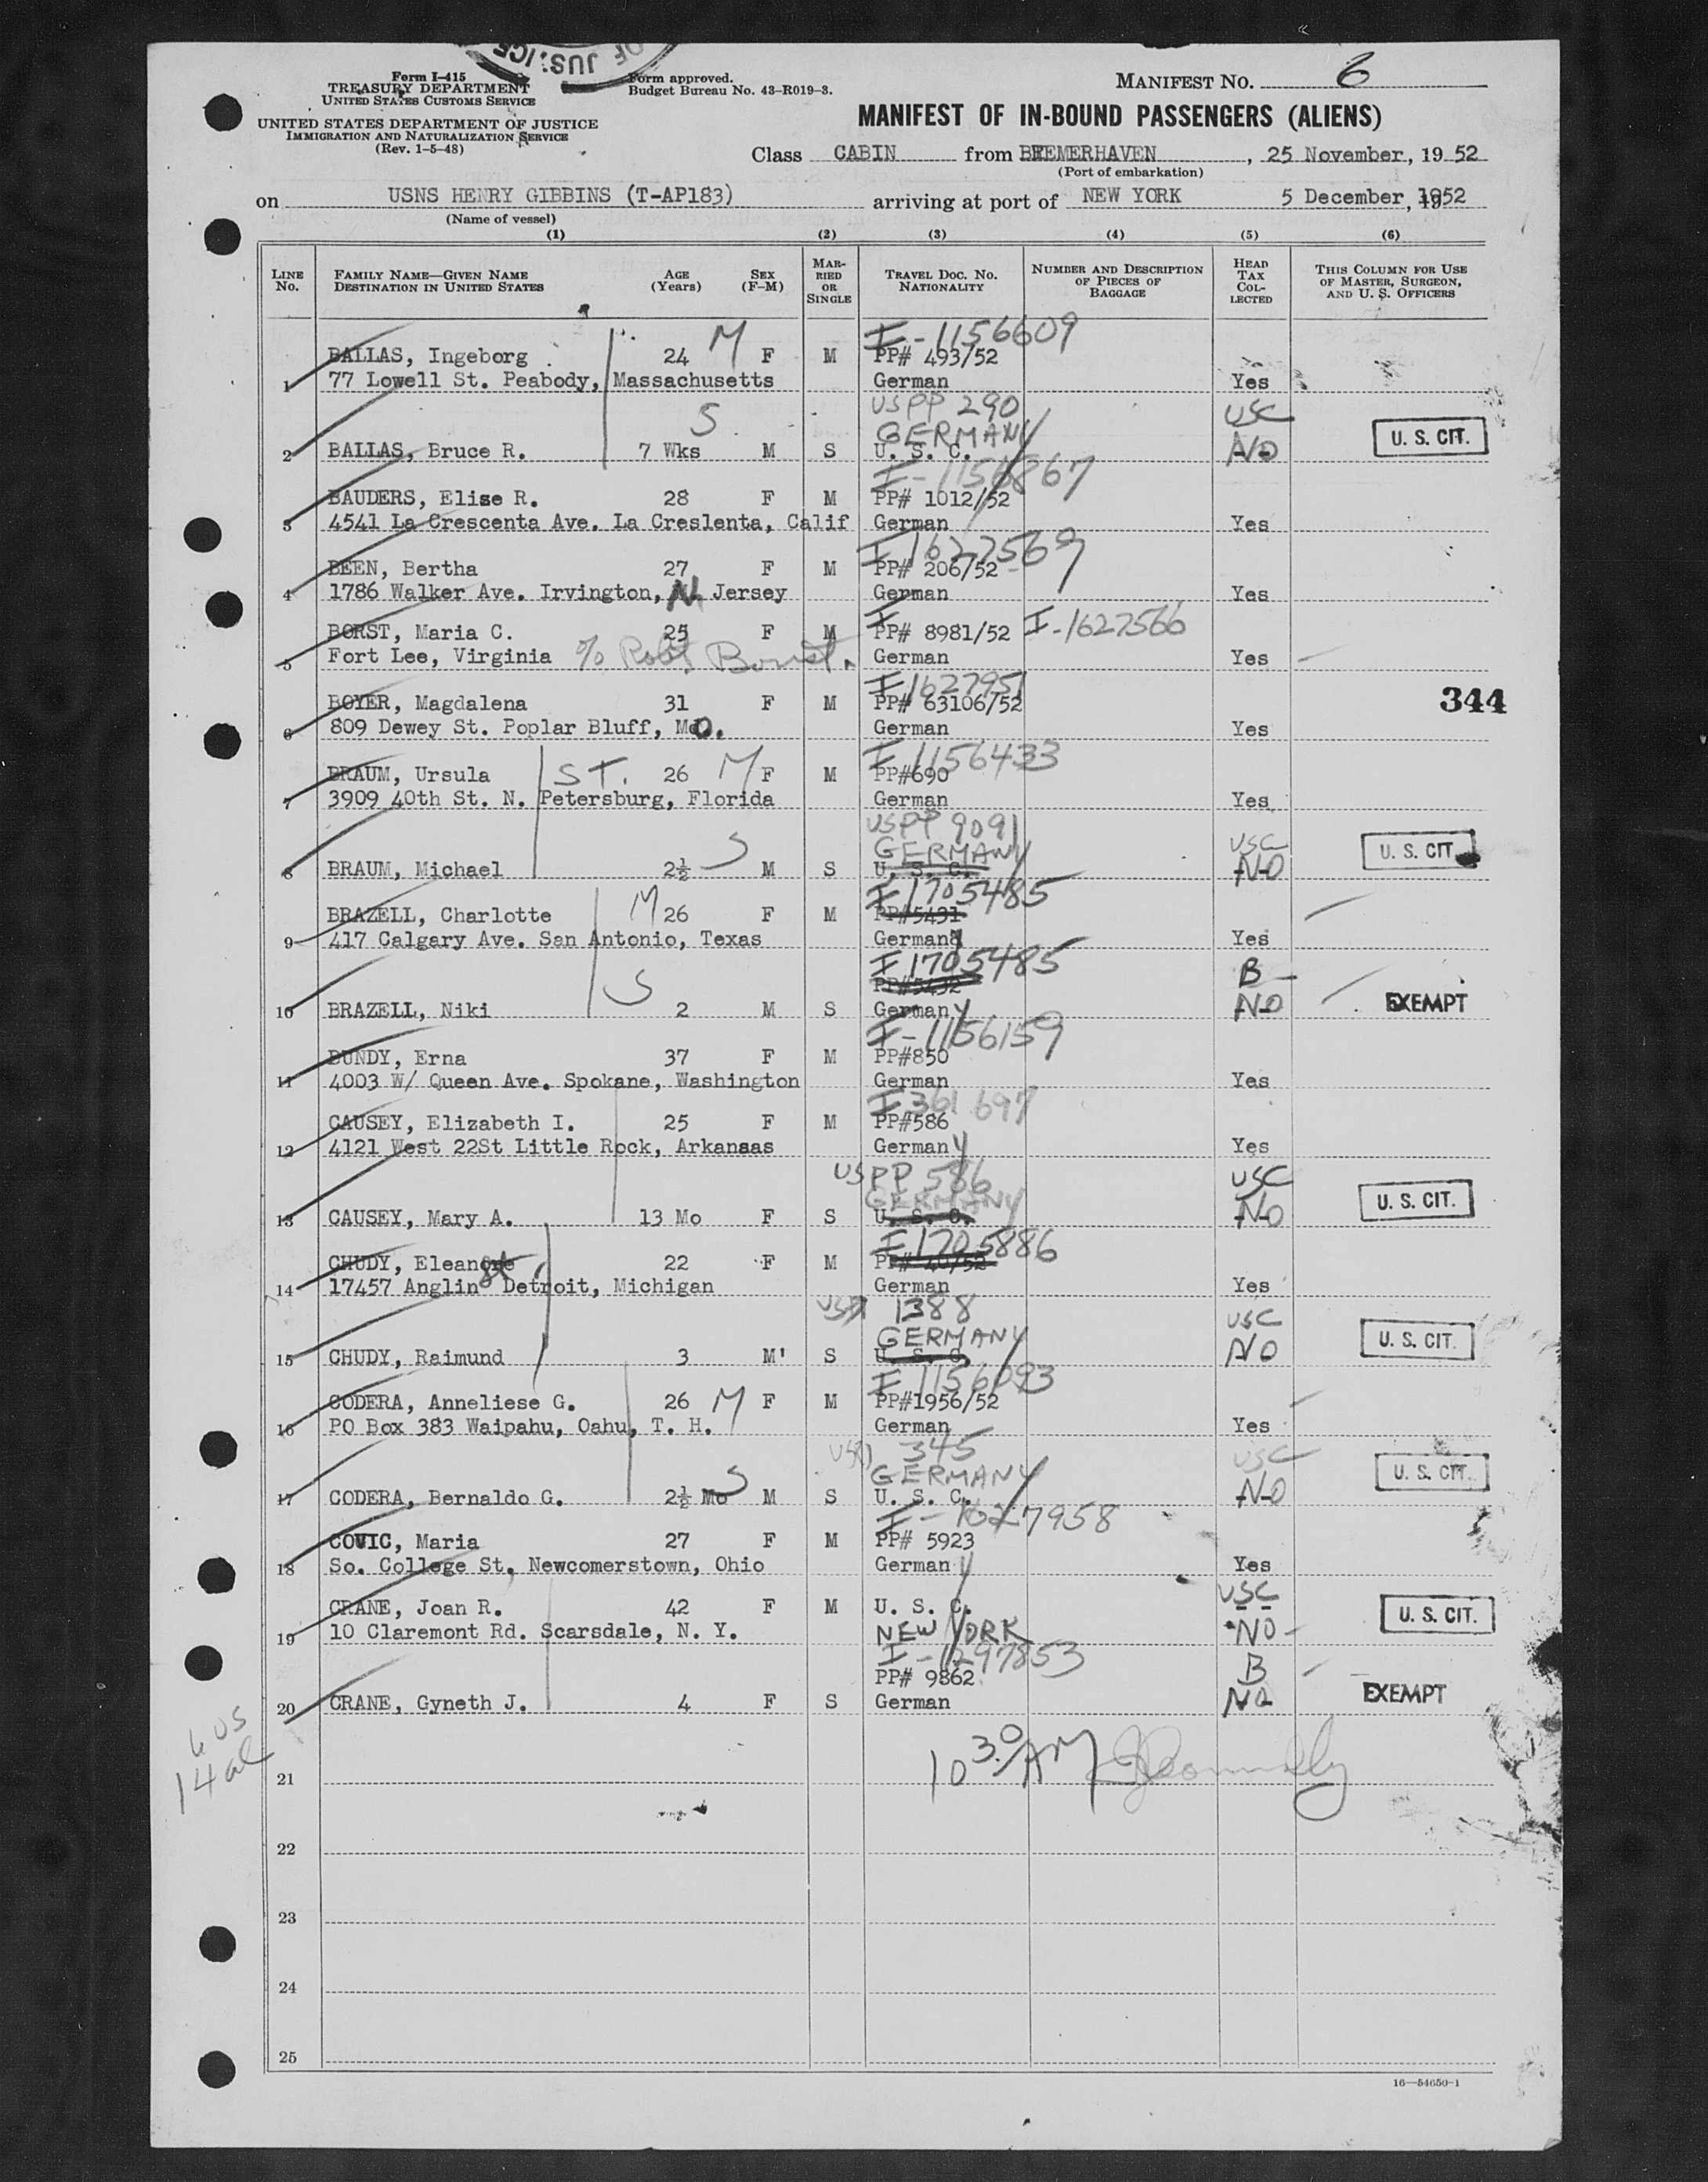 OF JUSTICE
Form I-415
TREASURY DEPARTMENT
UNITED STATES CUSTOMS SERVICE
UNITED STATES DEPARTMENT OF JUSTICE
IMMIGRATION AND NATURALIZATION SERVICE
(Rev. 1-5-48)
Form approved.
Budget Bureau No. 43-R019-3.
MANIFEST NO. 6
MANIFEST OF IN-BOUND PASSENGERS (ALIENS)
Class CABIN from BREMERHAVEN, 25 November, 19 52
(Port of embarkation)
on USNS HENRY GIBBINS (T-AP183) arriving at port of NEW YORK 5 December, 1952
(Name of vessel)
(1) (2) (3) (4) (5) (6)
LINE No. FAMILY NAME—GIVEN NAME DESTINATION IN UNITED STATES AGE (Years) SEX (F-M) MARRIED OR SINGLE TRAVEL DOC. NO. NATIONALITY NUMBER AND DESCRIPTION OF PIECES OF BAGGAGE HEAD TAX COLLECTED THIS COLUMN FOR USE OF MASTER, SURGEON, AND U. S. OFFICERS
I-1156609
BALLAS, Ingeborg 24 M F M PP# 493/52
1 77 Lowell St. Peabody, Massachusetts German Yes
USPP 290 USC
S GERMANY NO U. S. CIT.
2 BALLAS, Bruce R. 7 Wks M S U. S. C.
I-1156867
BAUDERS, Elise R. 28 F M PP# 1012/52
3 4541 La Crescenta Ave. La Creslenta, Calif German Yes
I 1627569
BEEN, Bertha 27 F M PP# 206/52
4 1786 Walker Ave. Irvington, N. Jersey German Yes
BORST, Maria C. 25 F M PP# 8981/52 I-1627566
5 Fort Lee, Virginia c/o Robt Borst. German Yes
I 1627951
BOYER, Magdalena 31 F M PP# 63106/52
344
6 809 Dewey St. Poplar Bluff, Mo. German Yes
I 1156433
BRAUM, Ursula ST. 26 M F M PP#690
7 3909 40th St. N. Petersburg, Florida German Yes
USPP 9091 USC
S GERMANY NO U. S. CIT
8 BRAUM, Michael 2½ M S U. S. C.
I 1705485
BRAZELL, Charlotte M 26 F M PP#5431
9 417 Calgary Ave. San Antonio, Texas Germany Yes
I 1705485 B
S PP#5432
10 BRAZELL, Niki 2 M S Germany NO EXEMPT
I-1156159
BUNDY, Erna 37 F M PP#850
11 4003 W/ Queen Ave. Spokane, Washington German Yes
I 361697
CAUSEY, Elizabeth I. 25 F M PP#586
12 4121 West 22St Little Rock, Arkansas Germany Yes
USPP 586 USC
GERMANY NO U. S. CIT.
13 CAUSEY, Mary A. 13 Mo F S U. S. C.
I 1705886
CHUDY, Eleanore 22 F M PP# 40/52
14 17457 Anglin St Detroit, Michigan German Yes
1388 USC
GERMANY NO U. S. CIT.
15 CHUDY, Raimund 3 M S U. S. C.
I 1156093
CODERA, Anneliese G. 26 M F M PP#1956/52
16 PO Box 383 Waipahu, Oahu, T. H. German Yes
345 USC
S GERMANY NO U. S. CIT.
17 CODERA, Bernaldo G. 2½ Mo M S U. S. C.
I-1627958
COVIC, Maria 27 F M PP# 5923
18 So. College St. Newcomerstown, Ohio Germany Yes
CRANE, Joan R. 42 F M U. S. C. USC U. S. CIT.
19 10 Claremont Rd. Scarsdale, N. Y. NEW YORK NO
I-1297853
PP# 9862 B
20 CRANE, Gyneth J. 4 F S German NO EXEMPT
6 US
14 al
10 30 AM
21
22
23
24
25
16—54650-1